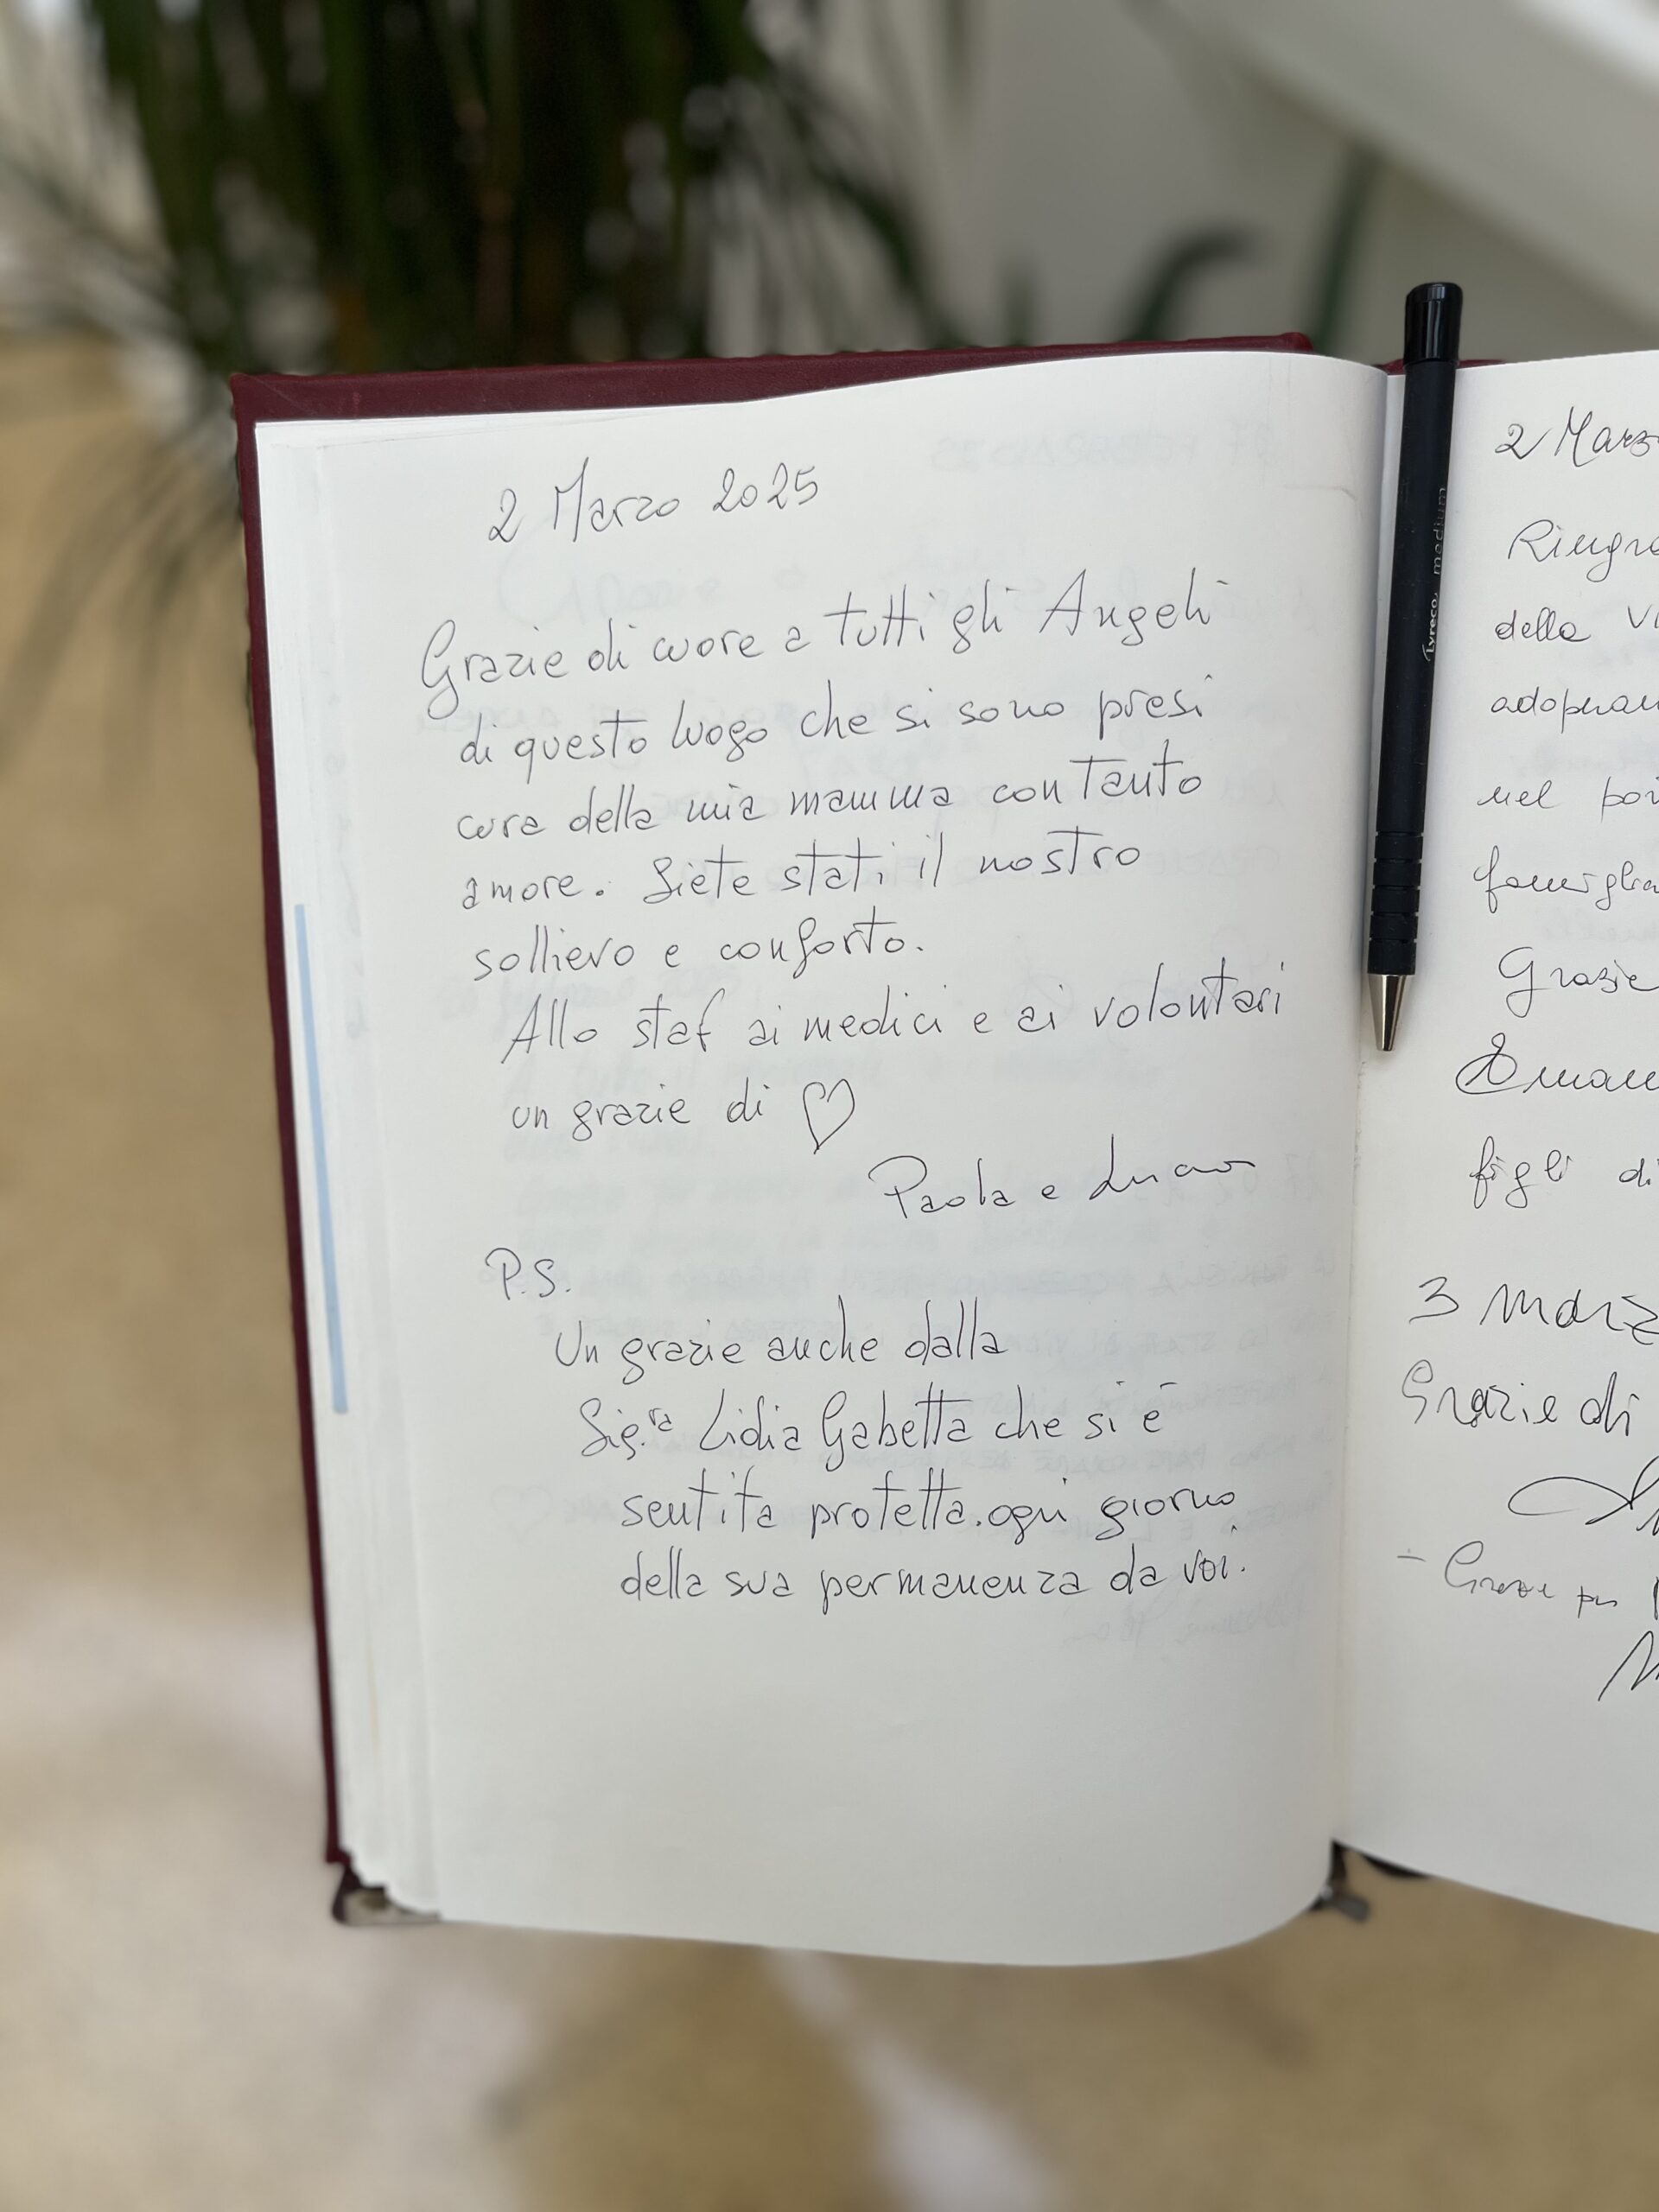 2 Marzo 2025
Grazie di cuore a tutti gli Angeli
di questo luogo che si sono presi
cura della mia mamma con tanto
amore. Siete stati il nostro
sollievo e conforto.
Allo staf ai medici e ai volontari
un grazie di ♡
Paola e
P.S.
Un grazie anche dalla
Sig.ra Lidia Gabetta che si è
sentita protetta.ogni giorno
della sua permanenza da voi.
Lyreco. medium
2 Marz
Ringra
della Vi
adoperan
nel
famiglia
Grazie
figli di
3 Marz
Grazie di
- Grazie per